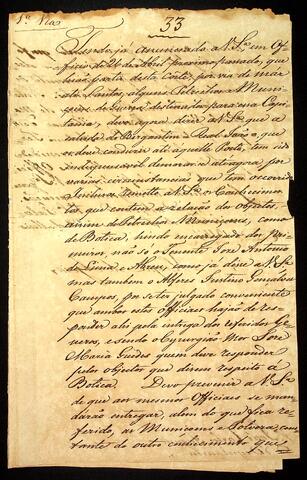 1ª Via
33
Havendo já annunciado a V. Sª em Of-
ficio de 26 de Abril proximo passado, que
hirão desta Corte, por via de mar
Santos, alguns Petrechos e Muni-
ções de Guerra destinados para essa Capi-
tania, devo agora dizer a V. Sª que a
do Bergantim Real João a que
se deve conduzir até aquelle Porto, tem sido
indispensavel demorar-se athe agora, por
varias circunstancias que tem occorrido.
Inclusos remetto a V. Sª os Conhecimen-
tos que contem a relação dos objectos,
assim de Petrechos e Munições, como
de Botica, hindo encarregado dos Pri-
meiros, não só o Tenente José Antonio
de Lima e Abreu, como já disse a V. Sª
mas tambem o Alferes Justino Gonçalves
Campos, por se ter julgado conveniente
que ambos estes Officiaes hajão de res-
ponder ahi pela intriga dos referidos Ge-
neros, e sendo o Cyrurgião Mor José
Maria Guides quem deve responder
pelos objectos que dizem respeito á
Botica. Devo prevenir a V. Sª
de que aos mesmos Officiaes se man-
darão entregar, alem do que fica re-
ferido, as Munições e Polvora, cons-
tante do outro conhecimento que